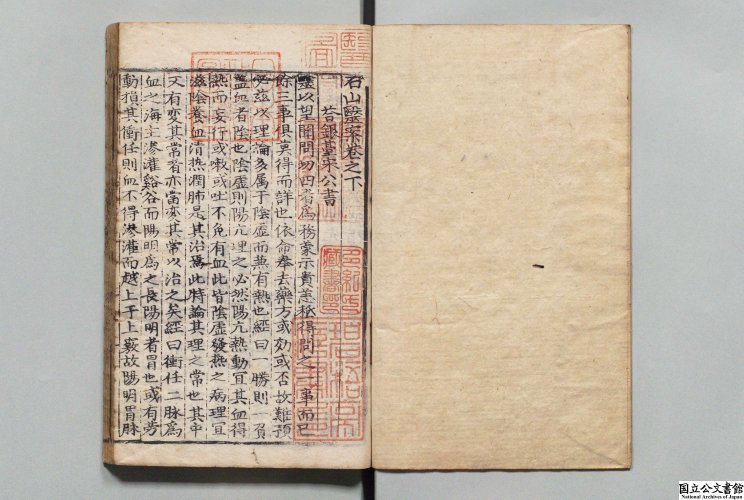 石山醫案卷之下
答銀臺宋公書
醫以望聞問切四者為務蒙示貴恙秪得問之一事而已
餘三事俱莫得而詳也依命奉去藥方或効或否故難預
必茲以理論多属于陰虛而兼有熱也經曰一勝則一負
盖血者陰也陰虛則陽亢理之必然陽亢熱動宜其血得
熱而妄行或嗽或吐不免有血此皆陰虛發熱之病理宜
滋陰養血清热潤肺是其治焉此特論其理之常也其中
又有變其常者亦當变其常以治之矣經曰衝任二脉為
血之海主滲灌谿谷而陽明為之長陽明者胃也或有劳
動損其衝任則血不得滲灌而越上于上竅故陽明胃脉
国立公文書館
National Archives of Japan